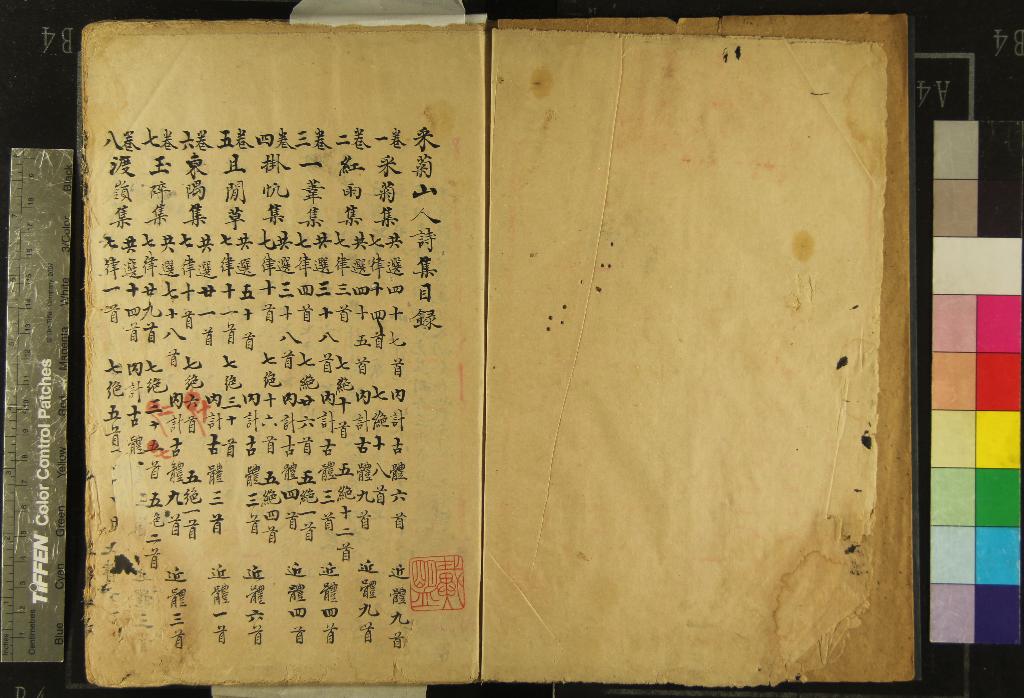 采菊山人詩集目録
卷一 采菊集 共選四十七首 内計古體六首 近體九首
七律十四首 七絶十八首
卷二 紅雨集 共選四十五首 内計古體九首 近體九首
七律三首 七絶十首 五絶十二首
卷三 一葦集 共選三十八首 内計古體三首 近體四首
七律四首 七絶廿六首 五絶一首
卷四 掛帆集 共選三十八首 内計古體四首 近體四首
七律十首 七絶十六首 五絶四首
卷五 且閒草 共選五十首 内計古體三首 近體六首
七律十一首 七絶三十首
卷六 東隅集 共選廿一首 内計古體三首 近體一首
七律十首 七絶六首 五絶一首
卷七 玉碎集 共選七十八首 内計古體九首 近體三首
七律廿九首 七絶三十五首 五色二首
卷八 渡嶺集 共選十四首 内計古體
七律一首 七絶五首
TIFFEN Color Control Patches
Blue Cyan Green Yellow Red Magenta White 3/Color Black
Inches
Centimetres
B4
A4
B4